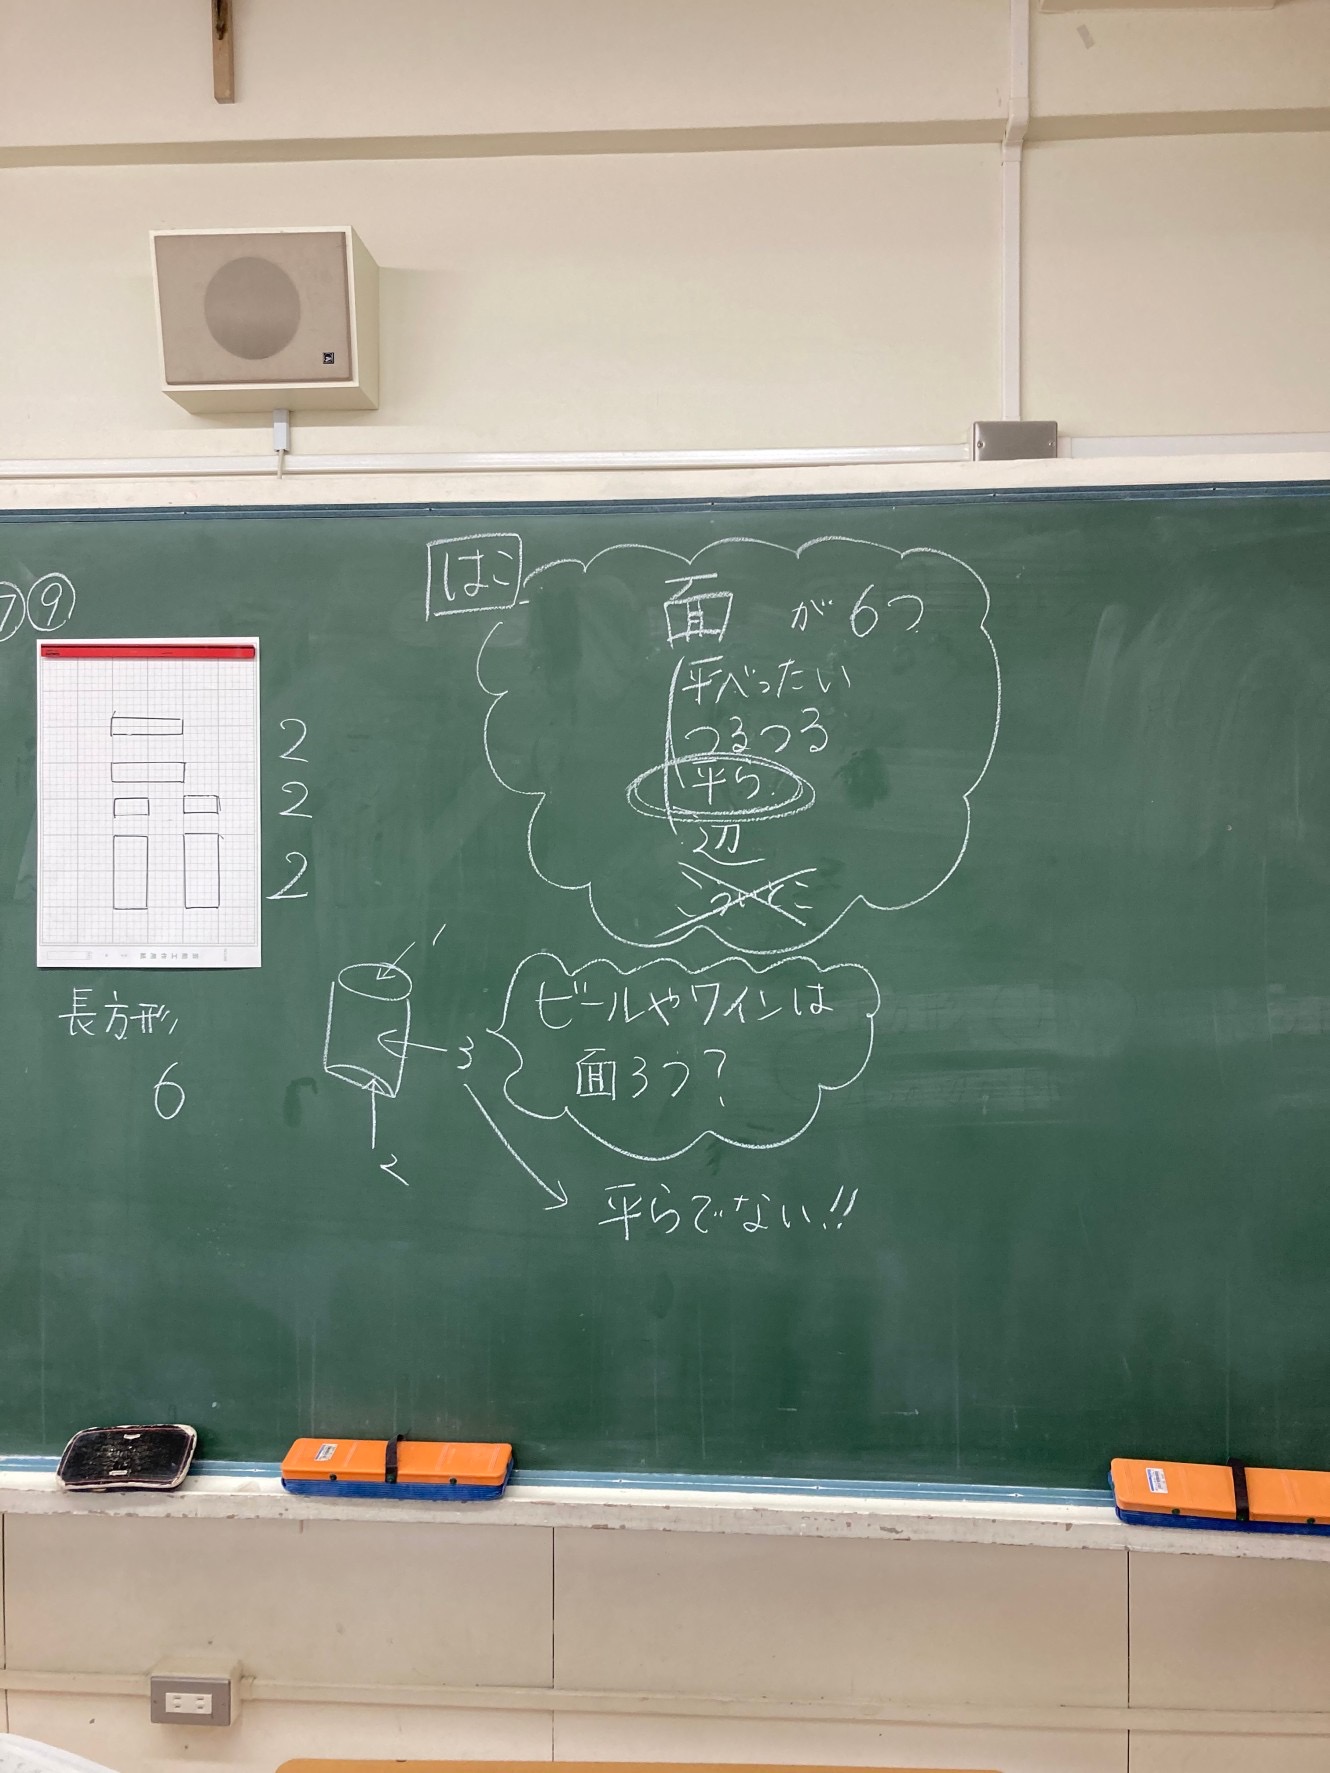 ⑦⑨
はこ
面が6つ
平べったい
つるつる
平ら
辺
2
2
2
長方形
6
1
3
2
ビールやワインは
面3つ?
平らでない!!